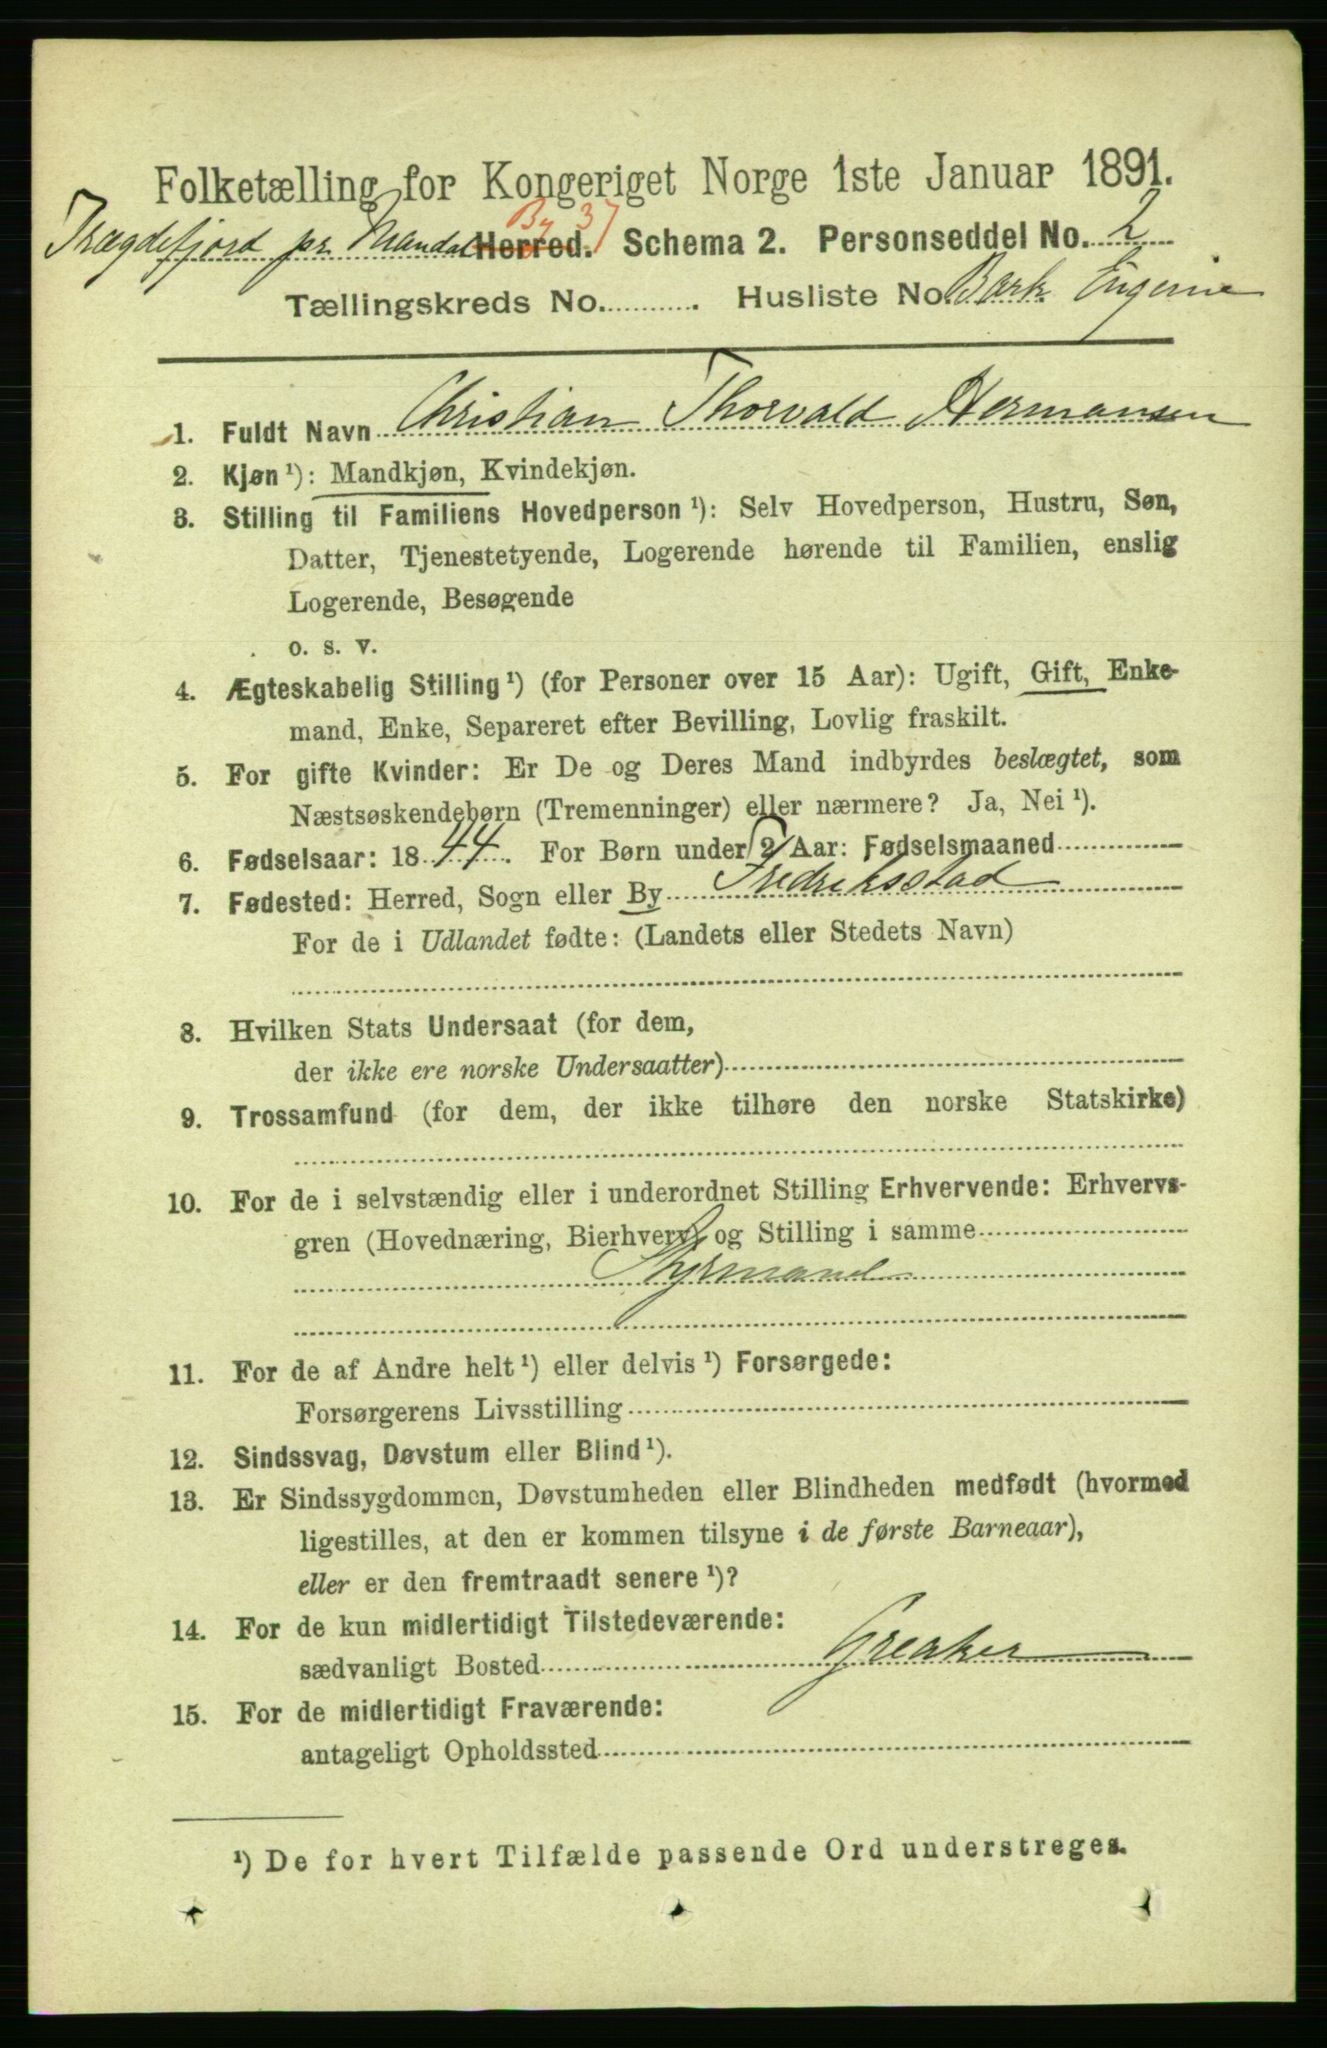 Folketælling for Kongeriget Norge 1ste Januar 1891.
By 37
Trægdefjord pr. Mandal Herred. Schema 2. Personseddel No. 2
Tællingskreds No. . Husliste No. Bark Eugenie
1. Fuldt Navn Christian Thorvald Hermansen
2. Kjøn ¹): Mandkjøn, Kvindekjøn.
3. Stilling til Familiens Hovedperson ¹): Selv Hovedperson, Hustru, Søn,
Datter, Tjenestetyende, Logerende hørende til Familien, enslig
Logerende, Besøgende
o. s. v.
4. Ægteskabelig Stilling ¹) (for Personer over 15 Aar): Ugift, Gift, Enke-
mand, Enke, Separeret efter Bevilling, Lovlig fraskilt.
5. For gifte Kvinder: Er De og Deres Mand indbyrdes beslægtet, som
Næstsøskendebørn (Tremenninger) eller nærmere? Ja, Nei ¹).
6. Fødselsaar: 1844. For Børn under 2 Aar: Fødselsmaaned
7. Fødested: Herred, Sogn eller By Fredriksstad
For de i Udlandet fødte: (Landets eller Stedets Navn)
8. Hvilken Stats Undersaat (for dem,
der ikke ere norske Undersaatter)
9. Trossamfund (for dem, der ikke tilhøre den norske Statskirke)
10. For de i selvstændig eller i underordnet Stilling Erhvervende: Erhvervs-
gren (Hovednæring, Bierhverv) og Stilling i samme
Styrmand
11. For de af Andre helt ¹) eller delvis ¹) Forsørgede:
Forsørgerens Livsstilling
12. Sindssvag, Døvstum eller Blind ¹).
13. Er Sindssygdommen, Døvstumheden eller Blindheden medfødt (hvormed
ligestilles, at den er kommen tilsyne i de første Barneaar),
eller er den fremtraadt senere ¹)?
14. For de kun midlertidigt Tilstedeværende:
sædvanligt Bosted Greaker
15. For de midlertidigt Fraværende:
antageligt Opholdssted
¹) De for hvert Tilfælde passende Ord understreges.